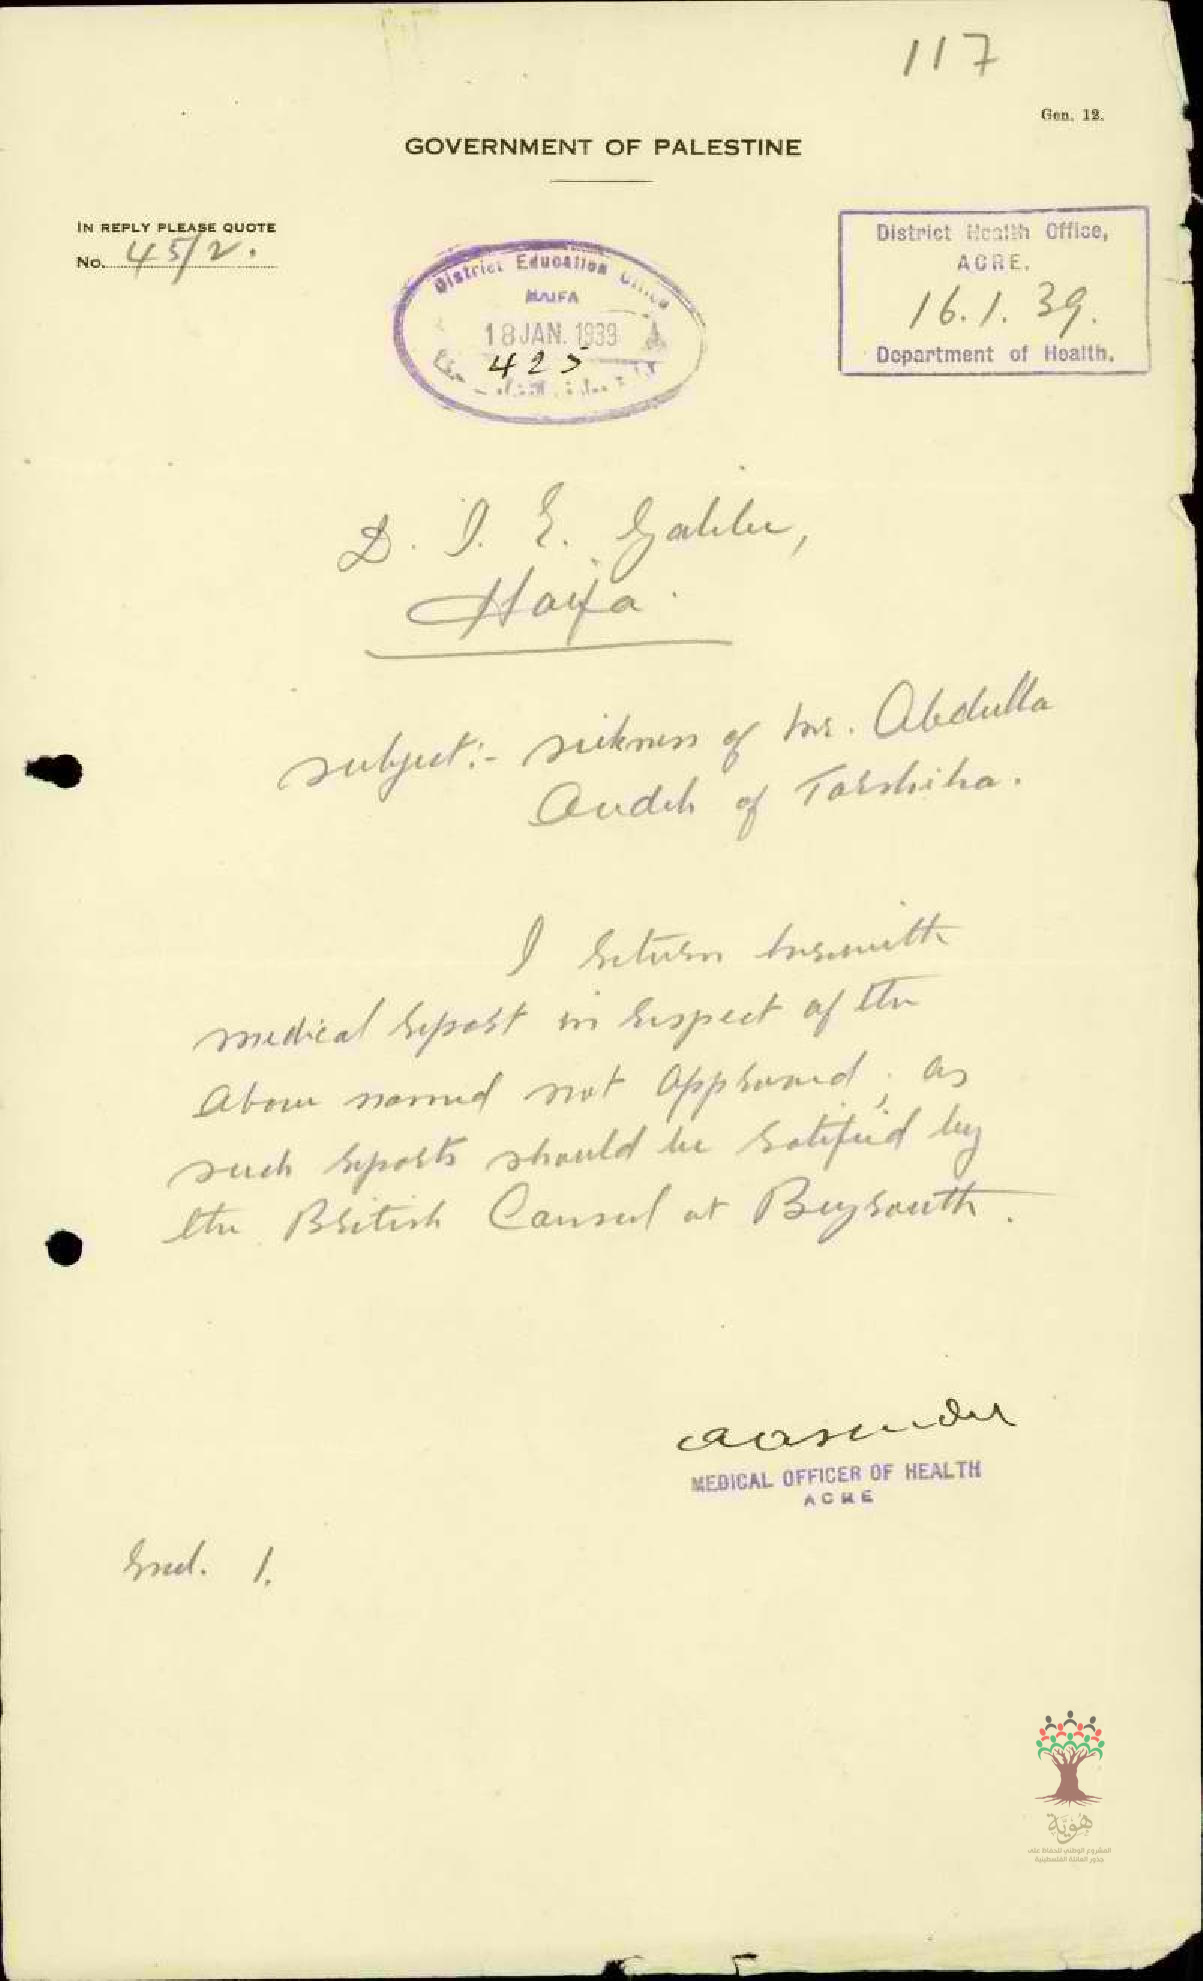 117
Gen. 12.
GOVERNMENT OF PALESTINE
IN REPLY PLEASE QUOTE
No. 45/2.
District Education Office
HAIFA
18 JAN. 1939
425
District Health Office,
ACRE.
16.1.39.
Department of Health.
D. I. E. Galilee,
Haifa.
subject:- sickness of Mr. Abdulla
Audeh of Tarshiha.
I return herewith
medical report in respect of the
above named not approved; as
such reports should be ratified by
the British Consul at Beyrouth.
MEDICAL OFFICER OF HEALTH
ACRE
Encl. 1.
هوية
المشروع الوطني للحفاظ على
جذور العائلة الفلسطينية